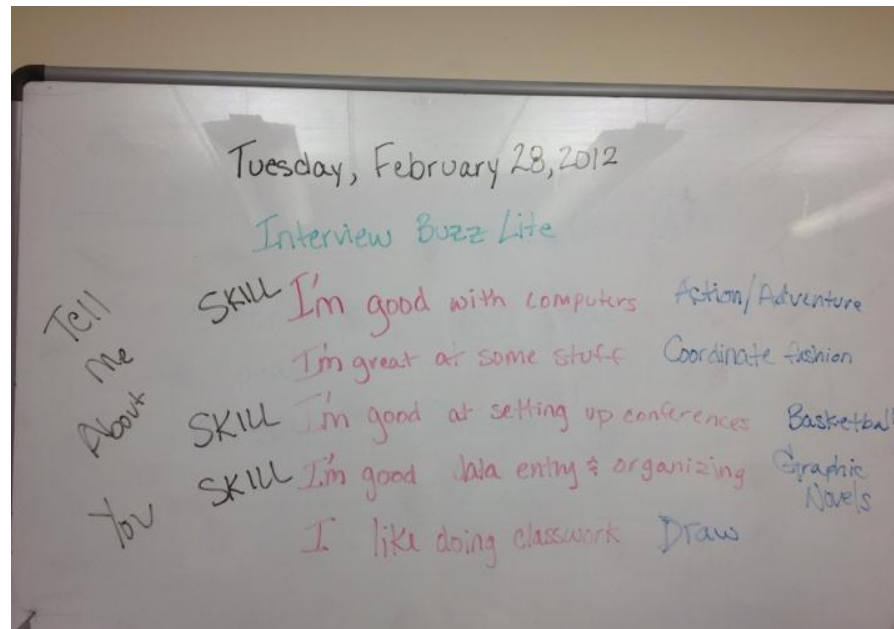 Tuesday, February 28, 2012
Interview Buzz Lite
Tell
Me
About
You
SKILL I'm good with computers Action/Adventure
I'm great at some stuff Coordinate fashion
SKILL I'm good at setting up conferences Basketball
SKILL I'm good data entry & organizing Graphic
Novels
I like doing classwork Draw